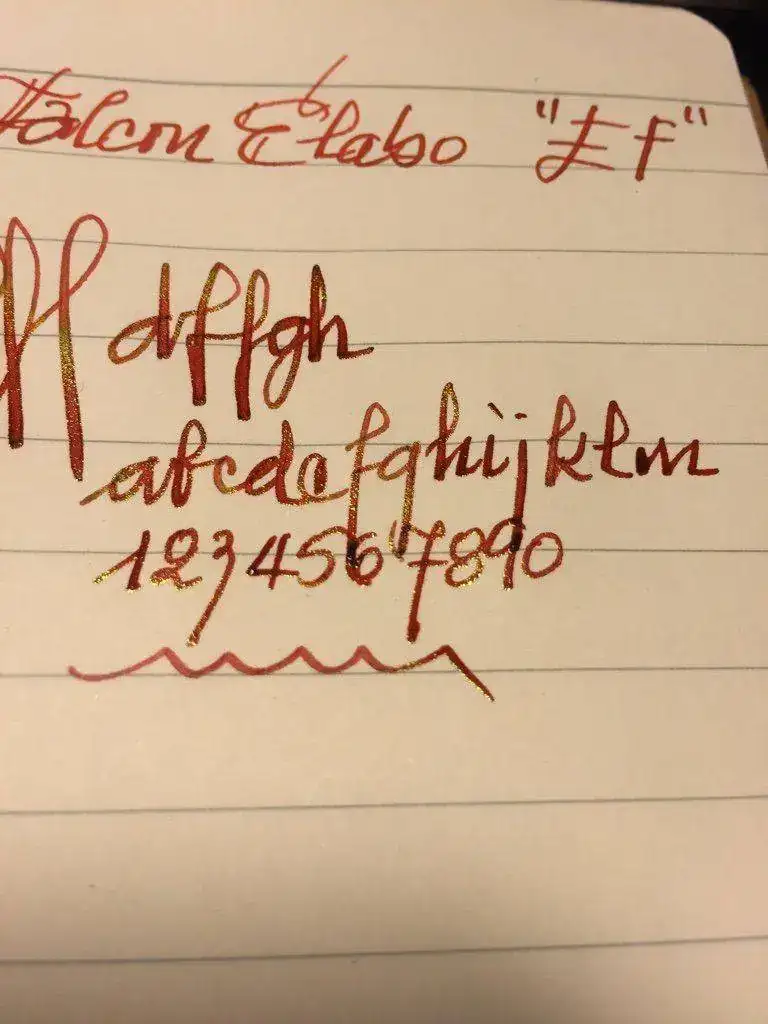 Falcon Elabo "Ef"
ff dffgh
abcdefghijklm
1234567890